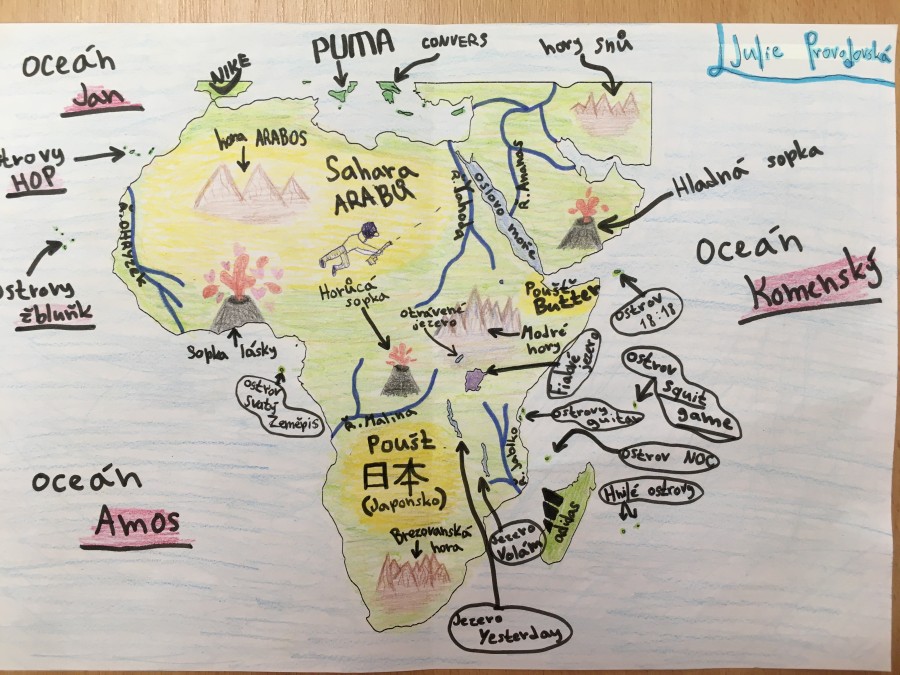 Julie Provodovská
PUMA
CONVERS
NIKE
hory snů
oceán
Jan
ostrovy
HOP
hora ARABOS
Sahara
ARABŮ
R. Jahoda
oslovo moře
R. Ananas
Hladná sopka
R. OHRYZEK
oceán
Komenský
ostrovy
žbluňk
Sopka lásky
Horůcá
sopka
otrávené
jezero
Poušť
Butter
Modré
hory
ostrov
18:18
Fialové
jezero
ostrov
Svatý
Zeměpis
ostrov
squit
game
ostrovy
guitar
R. Malina
R. Jablko
ostrov NOC
Poušť
日本
(Japonsko)
Hnilé ostrovy
oceán
Amos
adidas
Jezero
Volám
Březovanská
hora
Jezero
Yesterday